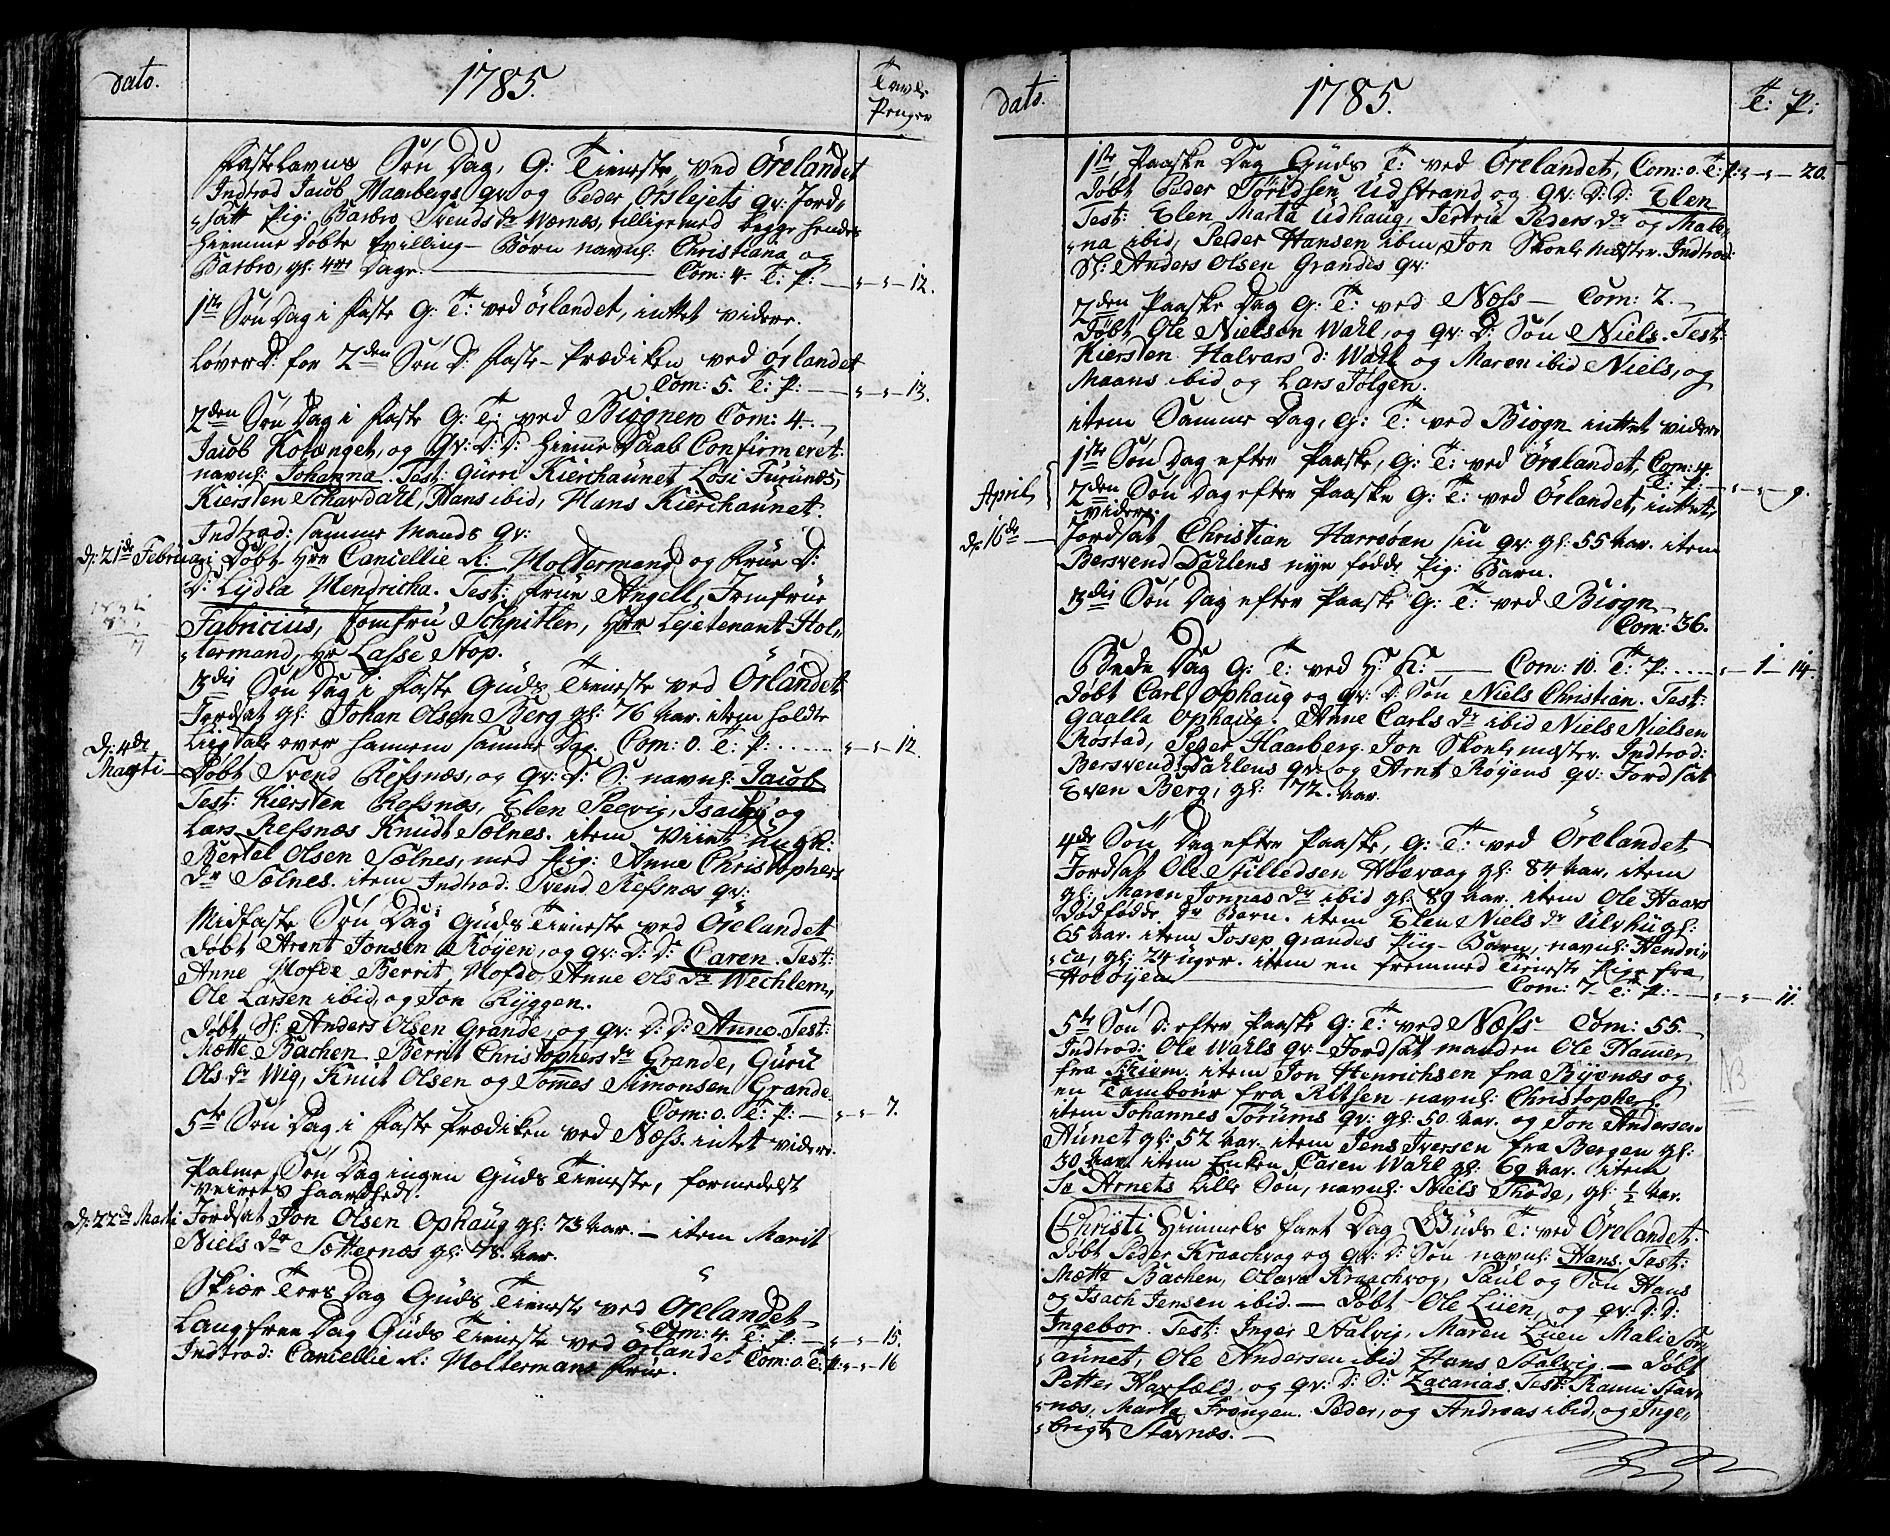 Dato.
1785.
Tavle
Penger
Fastelavns Søn Dag, G: Tieneste ved Ørelandet
Indtrod Jacob Haarbergs qv og Peder Orslejets qv: Jord,,
,,satt Pig: Barbro Svends dr Wærnæs, tillige med begge hendes
hiemme døbte tvilling – Børn navnl: Christiana og
Barbro, gl: 4re Dage. — Com: 4. T: P: — ,, – ,, – 12.
1ste Søn Dag i Faste G: T: ved Ørlandet, intet videre.
Løver D: for 2den Søn D: Faste – Prædiken ved Ørlandet
Com: 5. T: P: — ,, – ,, – 13.
2den Søn Dag i Faste G: T: ved Biognen Com: 4. –
Jacob Kotænget, og qv: D: D: hieme Daab Confirmeret
navnl: Johanna. Test: Gurri Kierchaunet Losi Furunæs,
Kiersten Schardahl, Hans ibid, Hans Kierchaunet.
Indtrod: samme Mands qv:
D: 21de Februari Døbt Hrr Cancellie R: Holtermand og Frue D:
D: Lydia Hendricha. Test: Frue Angell, Jomfrue
Fabricius, Jomfru Schnitler, Hrr Lejetenant Hol,,
,,termand, hr Lasse Stop.
3die Søn Dag i Faste Guds Tieneste ved Ørlandet
Jordsat gl: Johan Olsen Berg gl: 76 Aar. item holdte
Liig Tale over hannem samme Dag. Com: 0. T: P: ..... ,, – ,, – 12.
D: 4de
Marti –
Døbt Svend Refsnæs, og qv: D: S: navnl: Jacob
Test: Kiersten Refsnæs, Elen Peevig, Isach og
Lars Refsnæs Knudt Sælnes. item Viiet ungk:
Bertel Olsen Sælnes, med Pig: Anne Christophers
dr Sælnes. item Indtrod. Svend Refsnæs qv:
Midfaste Søn Dag Guds Tieneste ved Ørelandet
Døbt Arent Jonsen Røyen, og qv: D: D: Caren. Test:
Anne Hofde Berrit Hofde, Anne Ols dr Wechlem,
Ole Larsen ibid, og Jon Ryggen.
Døbt Sl: Anders Olsen Grande, og qv: D: D: Anne. Test:
Mætte Bachen Berrit Christophers dr Grande, Guru
Ols dr Wig, Knut Olsen og Tommes Simonsen Grande
Com: 0. T: P: — ,, – ,, – 7.
5te Søn Dag i Faste Prædiken ved Næss. intet videre.
Palme Søn Dag ingen Guds Tieneste, formedelst
Veirets haardheds.
D: 22de Marti Jordsat Jon Olsen Ophaug gl: 73 Aar. – item Marit
Niels dr Sætternæs gl: 78. Aar.
Skiær Tors Dag Guds Tieneste ved Ørelandet
Com: 4. T: P: — ,, – ,, – 15.
Langfree Dag Guds Tieneste ved Ørlandet Com: 0. T: P: ,, – ,, – 16
Indtrod: Cancellie R: Holtermans Frue.
Dato.
1785.
T: P:
1ste Paaske Dag Guds T: ved Ørelandet, Com: 0. T: P: ,, – ,, – 20.
Døbt Peder Siursen Udstrand og qv: D: D: Elen
Test: Elen Marta Udhaug, Jertrue Peders dr og Male,,
,,na ibid, Peder Hansen ibm, Jon Skoele Mæster. Indtrod:
Sl: Anders Olsen Grandes qv:
2den Paaske Dag G: T: ved Næss – Com: 2. –
Døbt Ole Nielsen Wahl, og qv: D: Søn Niels. Test:
Kiersten Halvars d: Wahl og Maren ibid Niels, og
Maans ibid og Lars Jølgen.
item Samme Dag, G: T: ved Biogn intet videre
1ste Søn Dag efter Paaske, G: T: ved Ørelandet, Com: 4.
T: P: — ,, – ,, – 9.
April,
2den Søn Dag efter Paaske G: T: ved Ørlandet, intet
videre.
D: 16de — Jordsat Christian Harsvøen sin qv: gl: 55 Aar. item
Bersvend Dahlens nye fødde Pig: Barn.
3die Søn Dag efter Paaske G: T: ved Biogn
Com: 36.
Bede Dag G: T: ved H: K: — Com: 10. T: P: .... ,, – 1 – 14.
Døbt Carl Ophaug og qv: D: Søn Niels Christian. Test:
Gaalla Ophaug. Anne Carls dr ibid Niels Nielsen
Røstad, Peder Haarberg. Jon Skoelemæster. Indtrod:
Bersvend Dahlens qv: og Arnt Røyens qv: Jordsat
Even Berg, gl: 72. Aar.
4de Søn Dag efter Paaske, G: T: ved Ørelandet
Jordsat Ole Stilledsen Hovaag gl: 84 Aar. item
gl: Maren Jonnas dr ibid gl: 89 Aar. item Ole Haars
Dødfødde dr Barn. item Elen Niels dr Ulvhu gl:
65 Aar. item Josep Grandes Piig – Barn, navnl: Hendri,,
,,ca, gl: 24 uger. item en fremmed Tieneste Pige fra
Holøyen — Com: 7. T: P: — ,, – ,, – 11.
5te Søn D: efter Paaske G: T: ved Næss – Com: 55. –
Indtrod: Ole Wahls qv – Jordsat manden Ole Hammer
fra Thiem. item Jon Henrichsen fra Byenæs og
en Tambour fra Ritsen navnl: Christopher.
item Johannes Torums qv: gl: 50 Aar. og Jon Andersen
Aunet gl: 52 Aar. item Jens Iversen fra Bergen gl:
30 Aar. item Enken Caren Wahl gl: 69 Aar. item
Se Arnets lille Søn, navnl: Niels Thode, gl: ½ Aar.
NB
Christi Himmels fart Dag Guds T: ved Ørelandet.
Døbt Peder Kraachvog og qv: D: Søn navnl: Hans. Test:
Mætte Bachen, Olava Kraachvog, Paul og Søn Hans
og Isach Jensen ibid. — Døbt Ole Luen, og qv: D: D:
Ingebor. Test: Inger Stalvig, Maren Luen Malie Tør,,
,,aunet, Ole Andersen ibid Hans Stalvig. — Døbt
Petter Harfæld, og qv: D: S: Zacarias. Test: Ranni Star,,
,,næs, Marta Frongen. Peder, og Andreas ibid, og Inge,,
,,brigt Starnæs. –